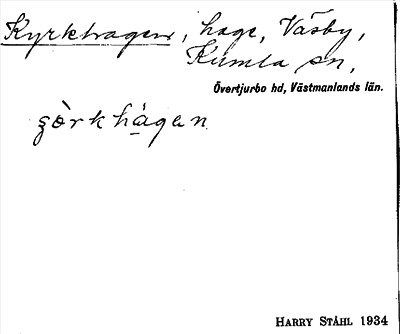 Kyrkhagen, hage, Väsby,
Kumla sn,
Övertjurbo hd, Västmanlands län.
HARRY STÅHL 1934